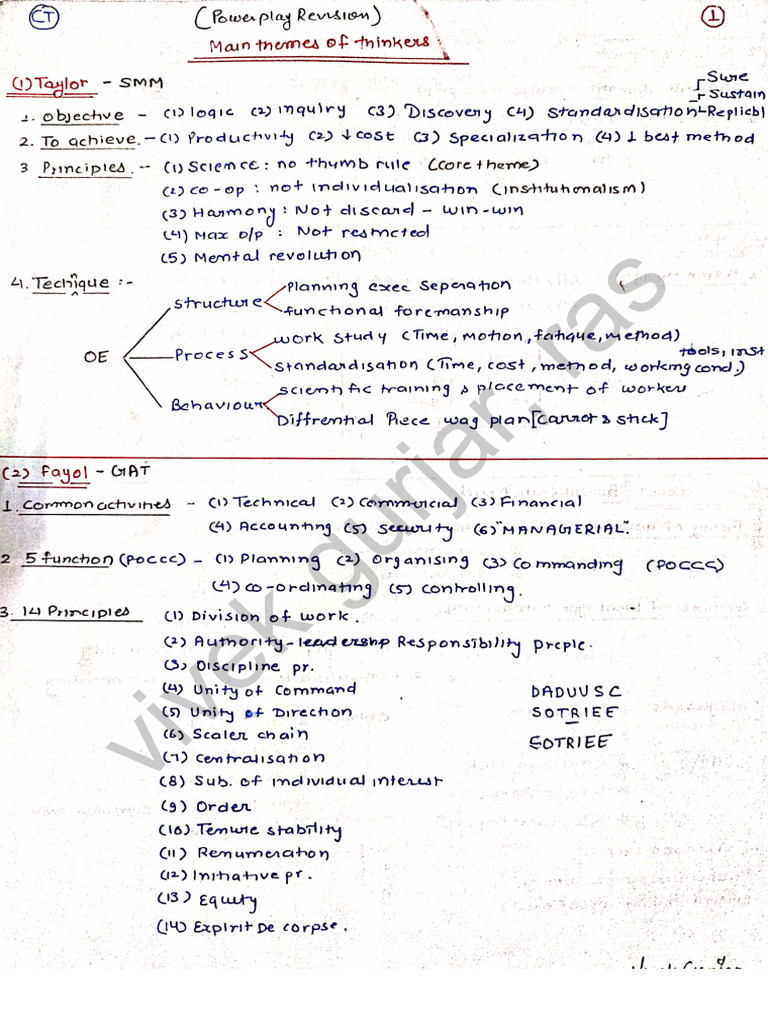 CT
(Powerplay Revision)
1
Main themes of thinkers
(1) Taylor - SMM
Sure
Sustain
1. Objective - (1) logic (2) inquiry (3) Discovery (4) Standardisation Replicbl
2. To achieve. - (1) Productivity (2) ↓cost (3) Specialization (4) 1 best method
3 Principles. - (1) Science: no thumb rule (core theme)
(2) co-op : not individualisation (institutionalism)
(3) Harmony : Not discard - win-win
(4) Max o/p : Not restricted
(5) Mental revolution
4. Technique :-
Planning exec seperation
structure
functional foremanship
work study (Time, motion, fatique, method)
OE
Process
tools, inst
standardisation (Time, cost, method, working cond.)
scientific training & placement of worker
Behaviour
Diffrential Piece wag plan [carrot & stick]
(2) Fayol - GAT
1. Common activities - (1) Technical (2) Commercial (3) Financial
(4) Accounting (5) Security (6) "MANAGERIAL".
2 5 function (POCCC) - (1) Planning (2) Organising (3) Commanding (POCCC)
(4) co-ordinating (5) controlling.
3. 14 Principles
(1) Division of work.
(2) Authority-leadership Responsibility prcple.
(3) Discipline pr.
(4) Unity of Command
DADUUSC
(5) Unity of Direction
SOTRIEE
(6) Scaler chain
SOTRIEE
(7) Centralisation
(8) Sub. of individual interest
(9) Order
(10) Tenure stability
(11) Renumeration
(12) Initiative pr.
(13) Equity
(14) Expirit De corpse.
vivek gurjar, ras